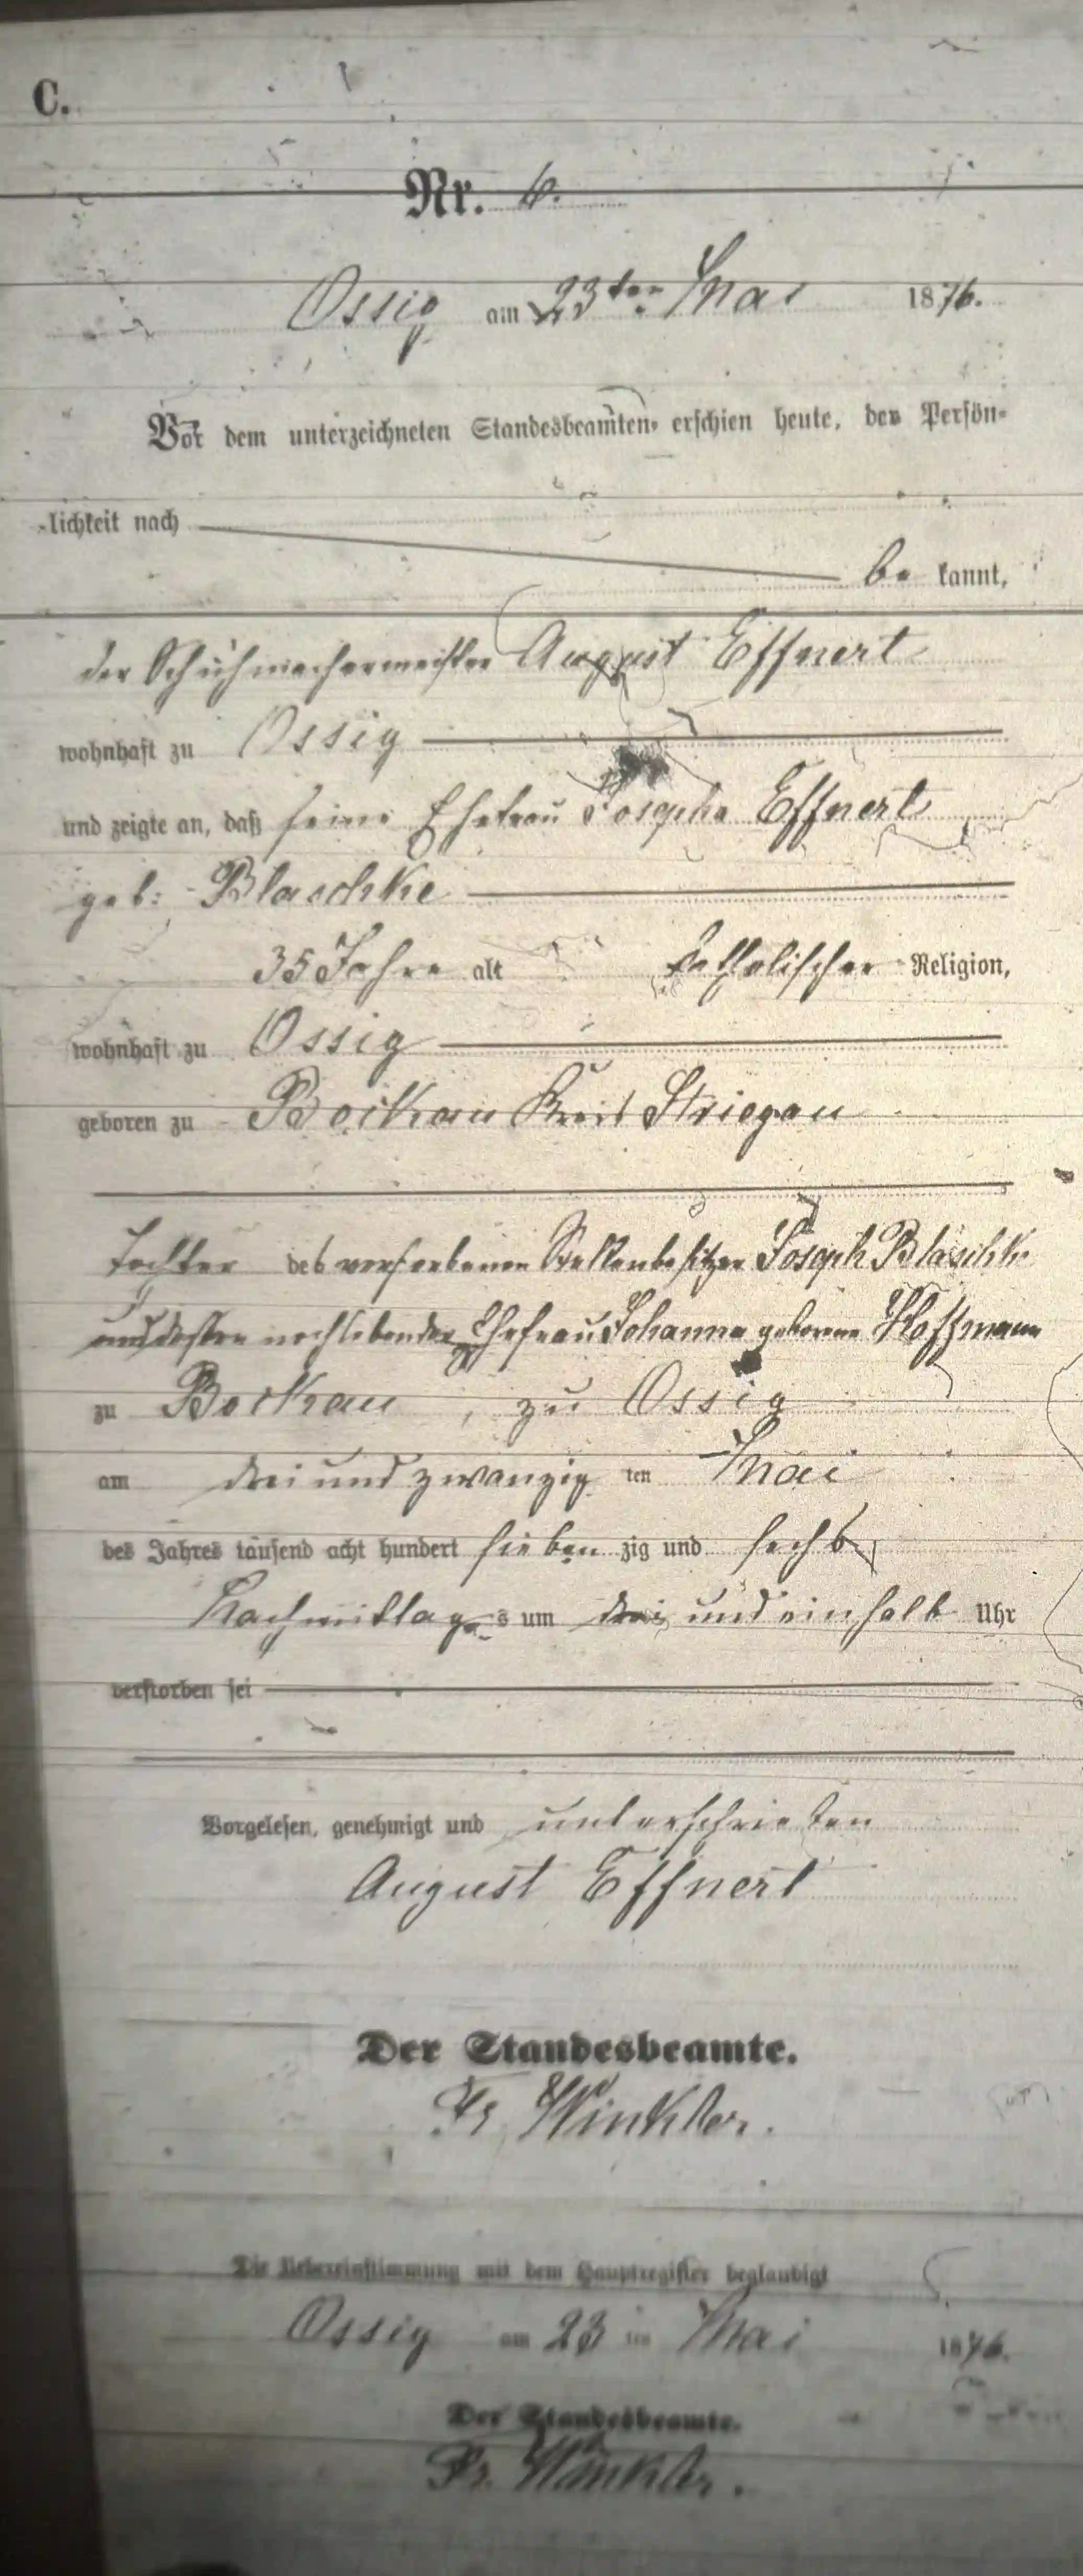 C.
Nr. 6.
Ossig am 23ten Mai 1876.
Vor dem unterzeichneten Standesbeamten erschien heute, der Persön-
lichkeit nach
be kannt,
der Schuhmachermeister August Effnert
wohnhaft zu Ossig
und zeigte an, daß seine Ehefrau Josepha Effnert
geb: Blaschke
35 Jahre alt katholischer Religion,
wohnhaft zu Ossig
geboren zu Bockau Kreis Striegau
Tochter des verstorbenen Stellenbesitzer Joseph Blaschke
und dessen noch lebenden Ehefrau Johanna geborene Hoffmann
zu Bockau, zu Ossig
am drei und zwanzig ten Mai
des Jahres tausend acht hundert sieben zig und sechs
Nachmittags um drei und einhalb Uhr
verstorben sei
Vorgelesen, genehmigt und unterschrieben
August Effnert
Der Standesbeamte.
Fr. Winkler.
Die Uebereinstimmung mit dem Hauptregister beglaubigt
Ossig am 23 ten Mai 1876.
Der Standesbeamte.
Fr. Winkler.